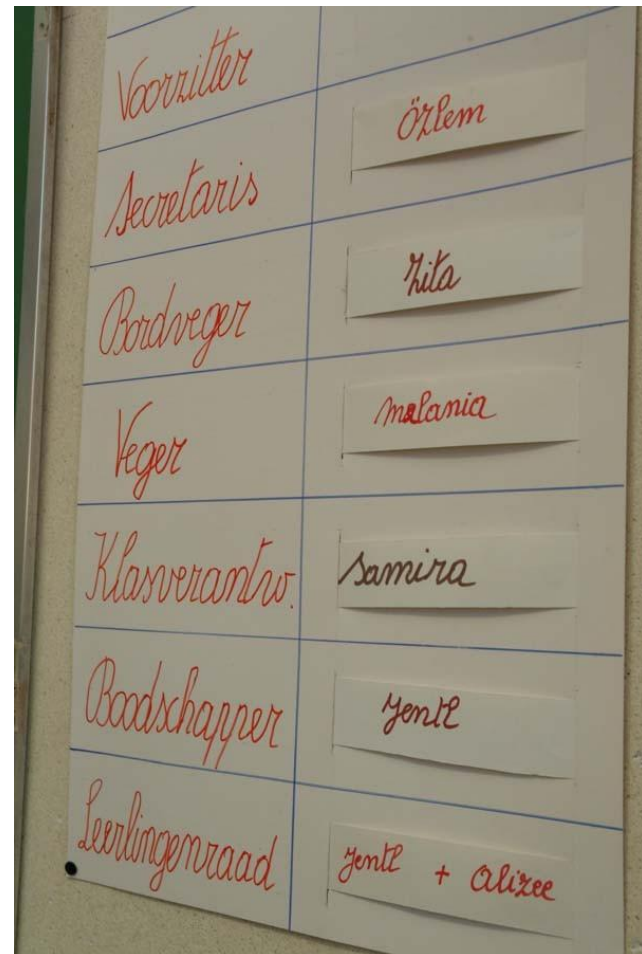 Voorzitter
Secretaris Özlem
Bordveger Zita
Veger melania
Klasverantw. Samira
Boodschapper Yentl
Leerlingenraad Yentl + Alizee